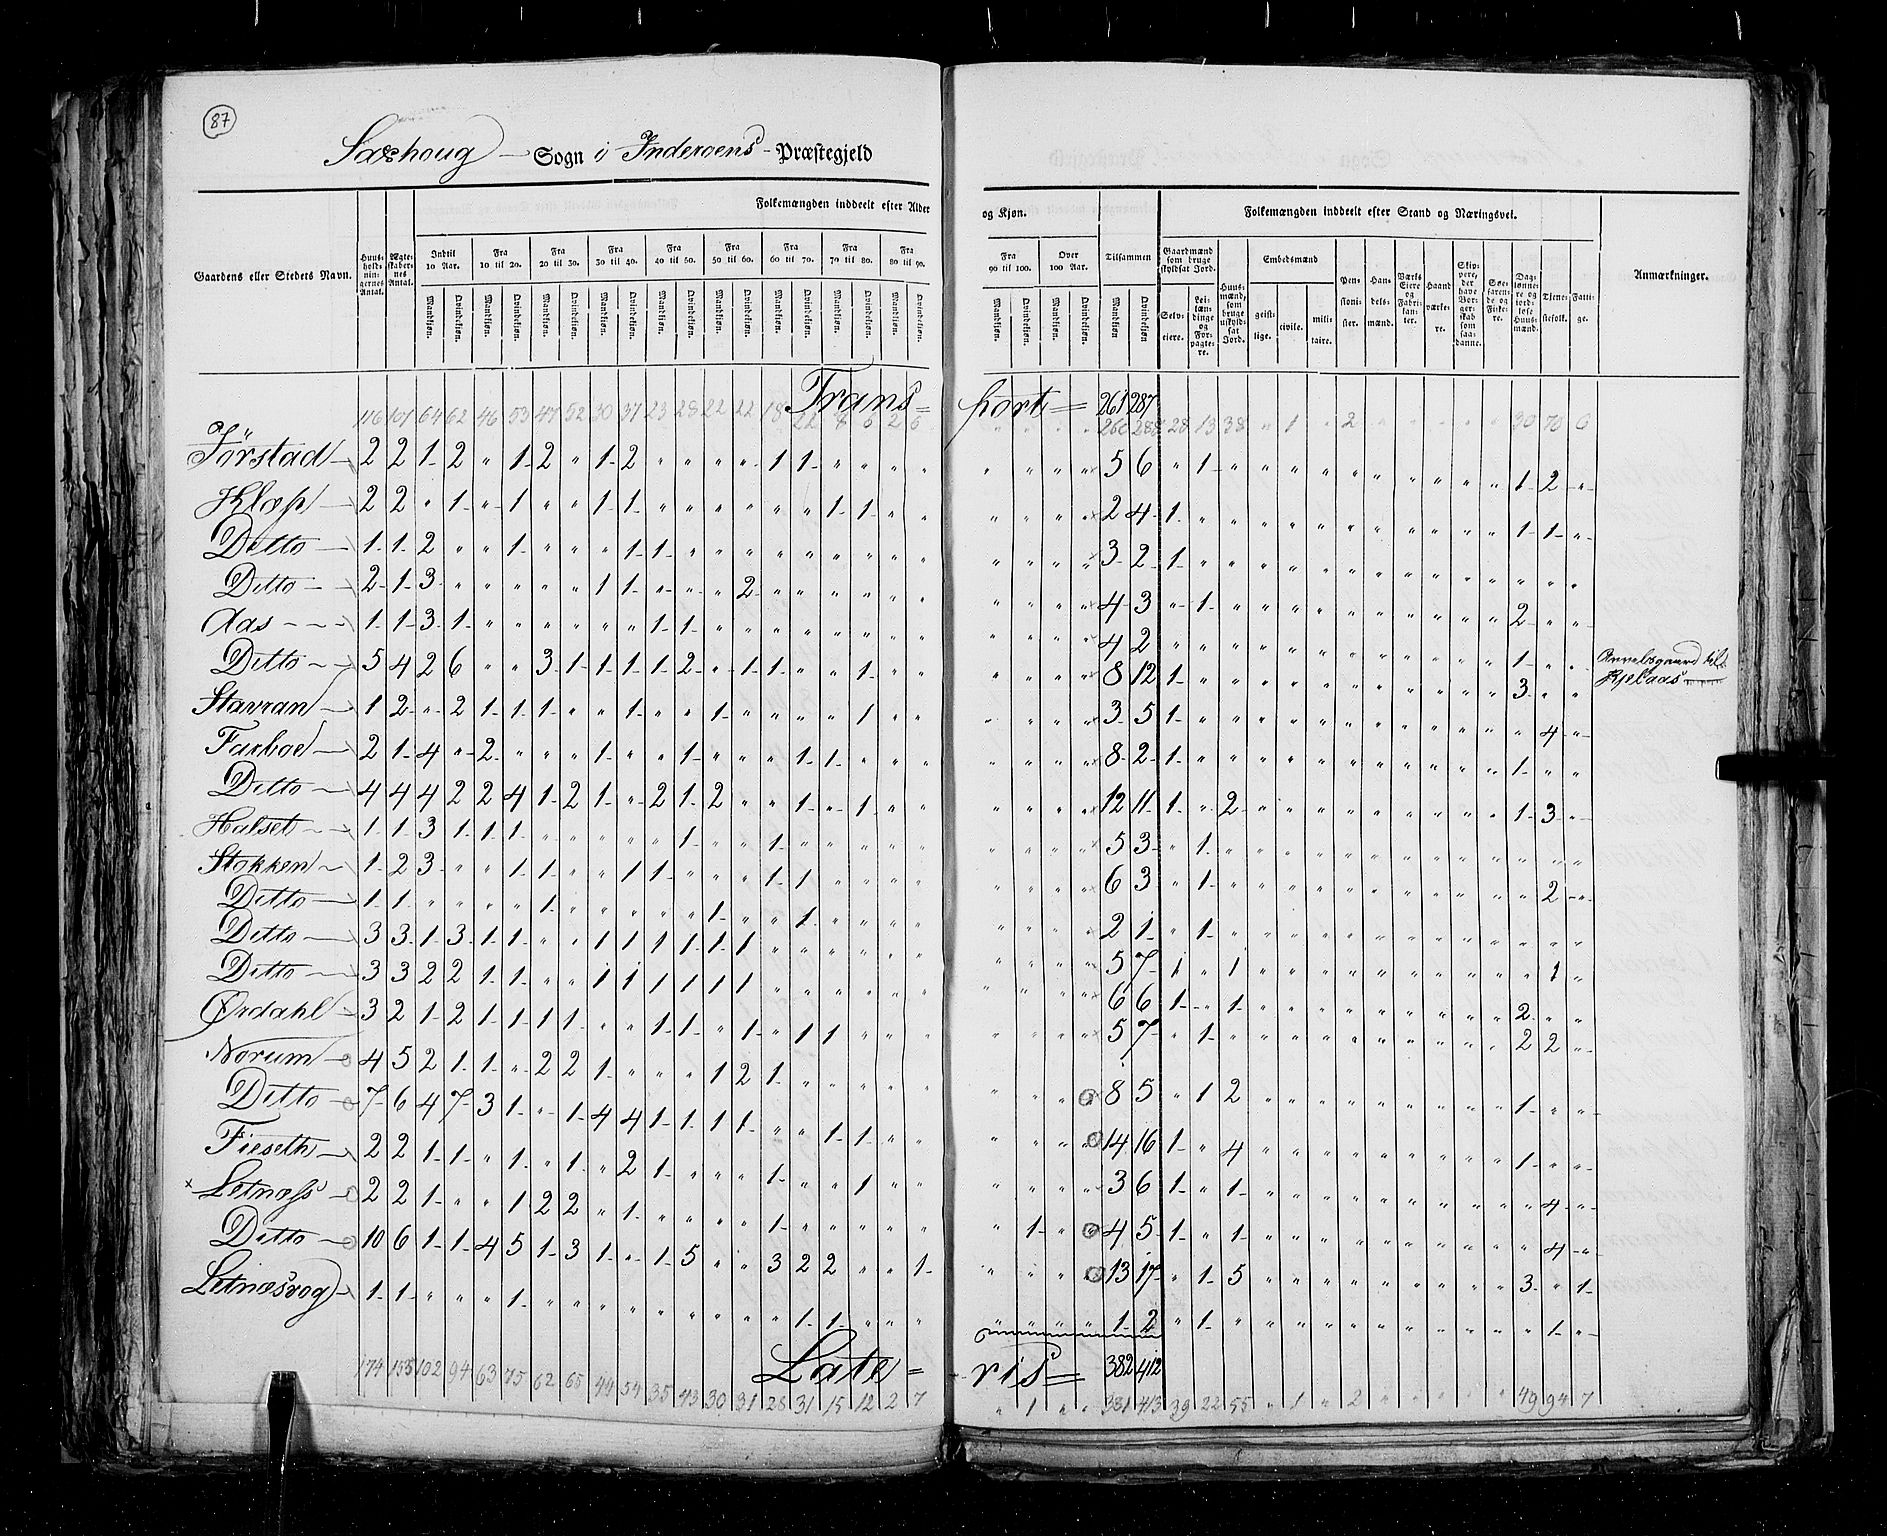 87
Saxhoug Sogn i Inderøens Præstegjeld
Folkemængden inddeelt efter Alder og Kjøn.
Folkemængden inddeelt efter Stand og Næringsvei.
Gaardens eller Stedets Navn.
Huus-holdnin-gernes Antal.
Ægte-skaber-nes Antal.
Indtil 10 Aar.
Fra 10 til 20.
Fra 20 til 30.
Fra 30 til 40.
Fra 40 til 50.
Fra 50 til 60.
Fra 60 til 70.
Fra 70 til 80.
Fra 80 til 90.
Fra 90 til 100.
Over 100 Aar.
Tilsammen
Mandkjøn. Qvindekjøn.
Gaardmænd som bruge skyldsat Jord.
Selv-eiere.
Lei-læn-dinge og For-pagte-re.
Huus-mænd, som bruge uskyld-sat Jord.
Embedsmænd
geist-lige.
civile.
mili-taire.
Pen-sioni-ster.
Han-dels-mænd.
Værks Eiere og Fabri-kan-ter.
Haand værke-re.
Skip-pere, der have Bor-ger-skab som saa-danne.
Søe-faren-de og Fiske-re.
Dag-lønne-re og jord-løse Huus-mænd.
Tjene-stefolk.
Fatti-ge.
Anmærkninger.
Trans=port= 261 287
116 107 64 62 46 53 47 52 30 37 23 28 22 22 18 22 8 6 2 6 " " " " 260 288 28 13 38 " 1 " 2 " " " " " 30 70 6
Jørstad 2 2 1 2 " 1 2 " 1 2 " " " " 1 1 " " " " " " " " 5 6 " 1 " " " " " " " " " " 1 2 "
Klæp 2 2 " 1 " 1 " " 1 1 " " " " " " 1 1 " " " " " " 2 4 1 " " " " " " " " " " " 1 1 "
Ditto 1 1 2 " " 1 " " " 1 1 " " " " " " " " " " " " " 3 2 1 " " " " " " " " " " " " " "
Ditto 2 1 3 " " " " " 1 1 " " " 2 " " " " " " " " " " 4 3 " 1 " " " " " " " " " " 2 " "
Aas 1 1 3 1 " " " " " " 1 1 " " " " " " " " " " " " 4 2 " " " " " " " " " " " " 1 " "
Ditto 5 4 2 6 " " 3 1 1 1 1 2 " 1 1 " " 1 " " " " " " 8 12 1 " " " " " " " " " " " 3 " " Avvelsgaard til Kjelaas
Stavran 1 2 " 2 1 1 1 " " 1 " " 1 " " " " 1 " " " " " " 3 5 1 " " " " " " " " " " " " 4 "
Farboe 2 1 4 " 2 " " " 1 " " 1 " " " 1 1 " " " " " " " 8 2 1 " " " " " " " " " " " 1 " "
Ditto 4 4 4 2 2 4 1 2 1 " 2 1 2 " " 1 " 1 " " " " " " 12 11 1 " 2 " " " " " " " " " 1 3 "
Halset 1 1 3 1 1 1 " " " " " 1 " " 1 " " " " " " " " " 5 3 " 1 " " " " " " " " " " " " "
Stokken 1 2 3 " " 1 1 " 1 1 " " " 1 1 " " " " " " " " 6 3 " 1 " " " " " " " " " " " 2 "
Ditto 1 1 " " " " 1 " " " " " 1 " " 1 " " " " " " " " 2 1 " 1 " " " " " " " " " " " " "
Ditto 3 3 1 3 1 1 " " 1 1 1 1 1 1 " " " " " " " " " " 5 7 1 " 1 " " " " " " " " " " 1 "
Ditto 3 3 2 2 1 1 " " 1 1 1 1 1 1 " " " " " " " " " " 6 6 1 " 1 " " " " " " " " " 2 " "
Ørdahl 3 2 1 2 1 1 1 1 " " 1 1 " 1 " 1 1 " " " " " " " 5 7 " 1 " " " " " " " " " " 2 2 "
Norum 4 5 2 1 1 " 2 2 1 " " " 1 2 1 " " " " " " " " " 8 5 " 1 2 " " " " " " " " " 1 " "
Ditto 7 6 4 7 3 1 " 1 4 4 1 1 1 1 " " 1 1 " " " " " " 14 16 1 " 4 " " " " " " " " " 1 " "
Fieseth 2 2 1 1 " 1 " 1 " 2 1 " " " 1 " " 1 " " " " " " 3 6 1 " 1 " " " " " " " " " " 4 "
× Letnæss 2 2 1 " " 1 2 2 " 1 " " " " 1 " " " " " " 1 " " 4 5 1 " 1 " " " " " " " " " " 4 "
Ditto 10 6 1 1 4 5 1 3 1 " 1 5 " " 3 2 2 " " 1 " " " " 13 17 " 1 5 " " " " " " " " " 3 " 1
Letnæsvog 1 1 " " " 1 " " " " " " " " " 1 1 " " " " " " " 1 2 " 1 " " " " " " " " " " " 1 "
Late=ris= 382 412
174 155 102 94 63 75 62 65 44 54 35 43 30 31 28 31 15 12 2 7 " 1 " " 381 413 39 22 55 " 1 " 2 " " " " " 49 94 7